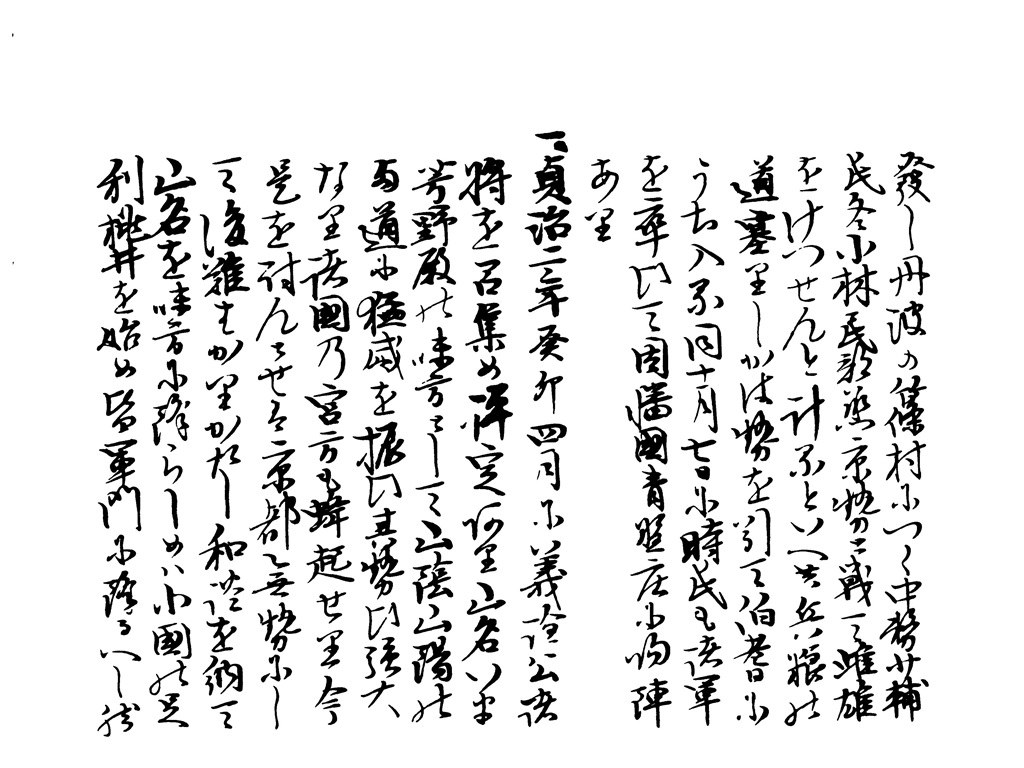 發し丹波の篠村につく中務少輔
氏冬小林民部丞京勢と戦て雌雄
をけつせんと計るといへ共兵粮の
道塞りしかは勢を引て伯耆に
うち入る同十月七日に時氏も諸軍
を率ひて因幡國青照庄に向陣
あり
一貞治二年癸卯四月に義詮公諸
将を召集め評定あり山名いま
芳野殿の味方として山陰山陽の
両道に猛威を振ひ其勢ひ強大
なり諸國乃宮方も蜂起せり今
是を討んとせは京都無勢にし
て後難はかりかたし和談を納て
山名を味方に降らしめハ北國の足
利桃井を始め皆軍門に降るへし然